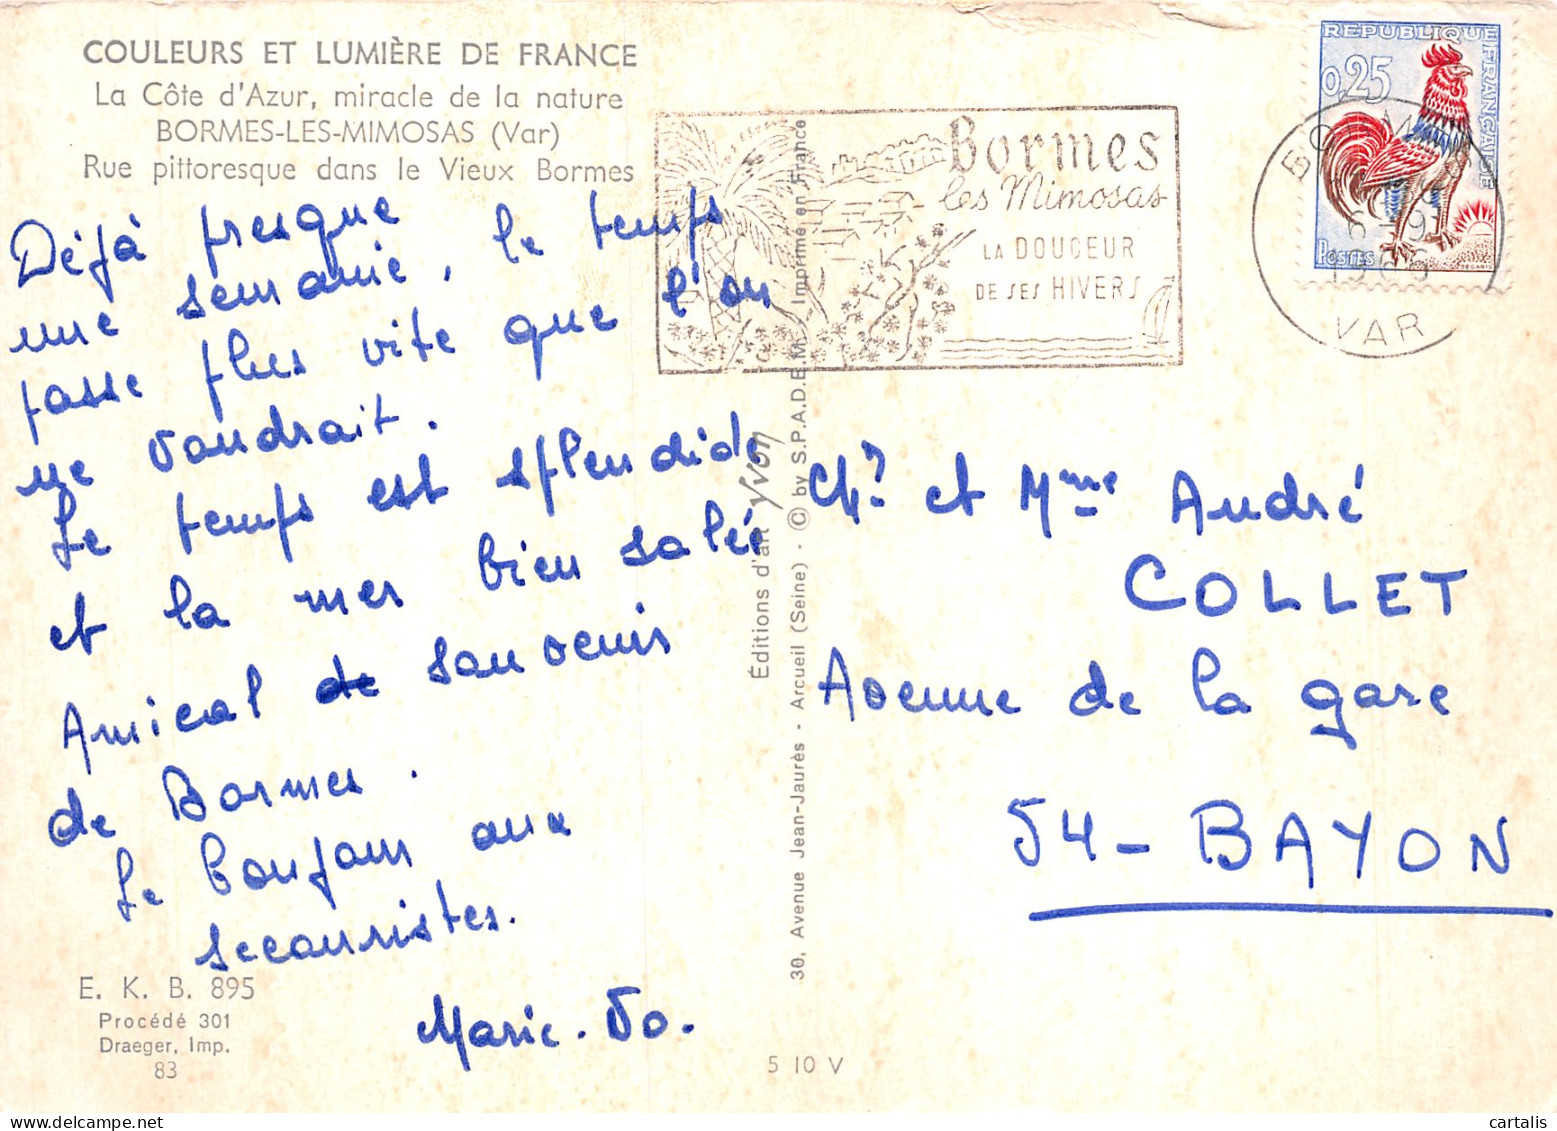 COULEURS ET LUMIÈRE DE FRANCE
La Côte d'Azur, miracle de la nature
BORMES-LES-MIMOSAS (Var)
Rue pittoresque dans le Vieux Bormes
Déjà presque
une semaine, le temps
passe plus vite que l'on
ne voudrait.
Le temps est splendide
et la mer bien salée
Amical de souvenir
de Bormes.
Le bonjour aux
secouristes.
Marie-Jo.
E. K. B. 895
Procédé 301
Draeger, Imp.
83
5 10 V
Éditions d'art Yvon
30, Avenue Jean-Jaurès - Arcueil (Seine) - © by S.P.A.D.E.M. Imprimé en France
Bormes
les Mimosas
LA DOUCEUR
DE SES HIVERS
REPUBLIQUE FRANÇAISE
0,25
POSTES
DECARIS
VAR
et Mme André
COLLET
Avenue de la gare
54-BAYON
cartalis